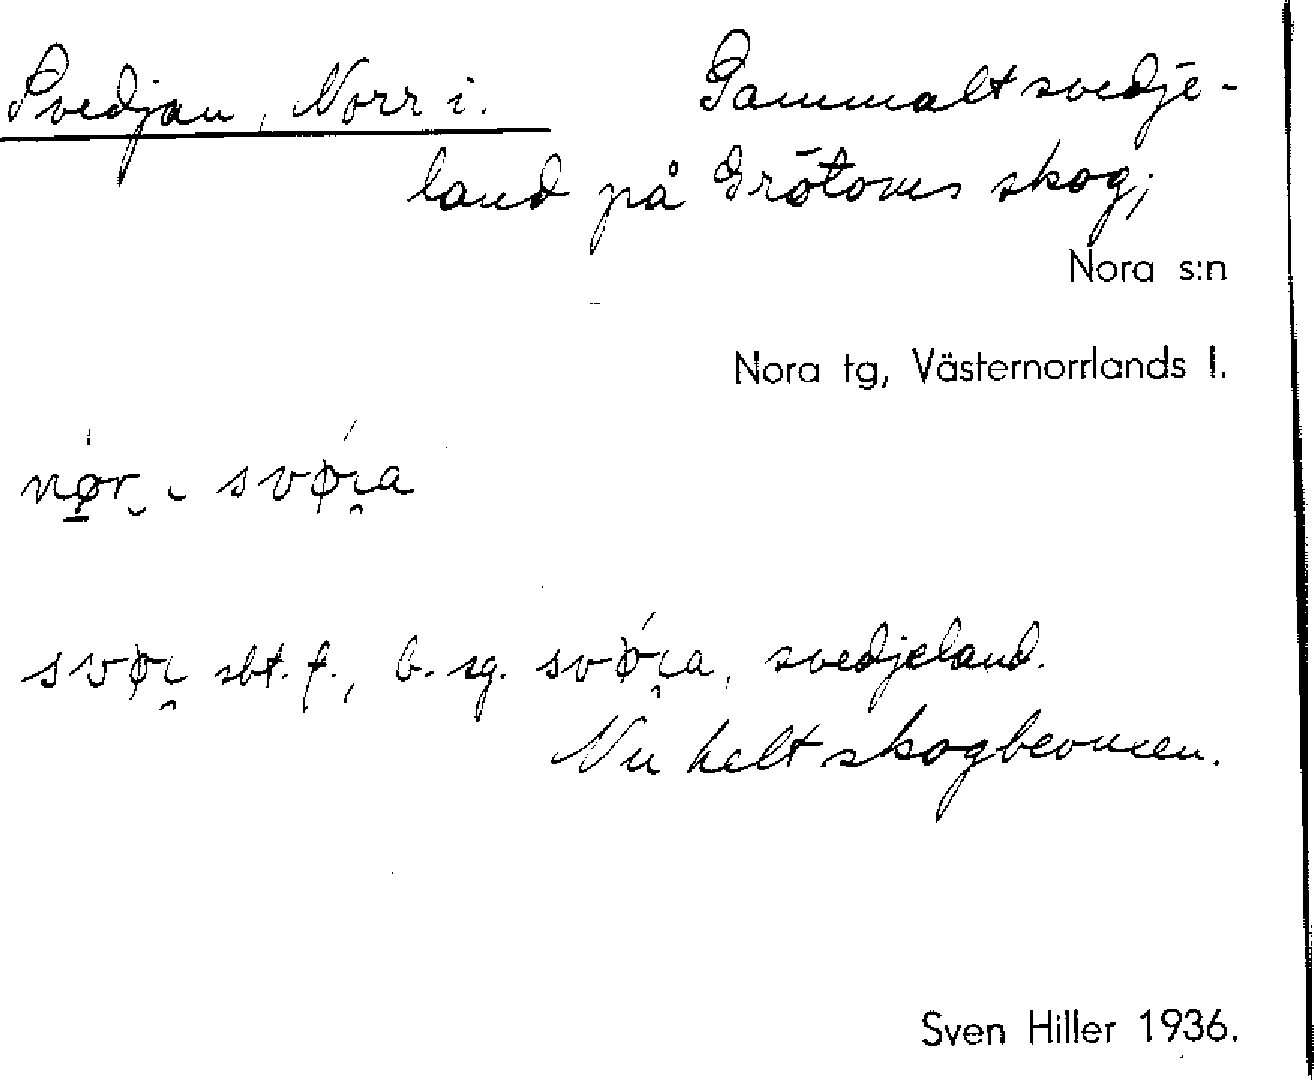 Svedjan, Norr i. Gammalt svedje-
land på Grötoms skog;
Nora s:n
Nora tg, Västernorrlands l.
nør i svøi̯a
svøi̯ sbt. f., b. sg. svøi̯a, svedjeland.
Nu helt skogbevuxen.
Sven Hiller 1936.